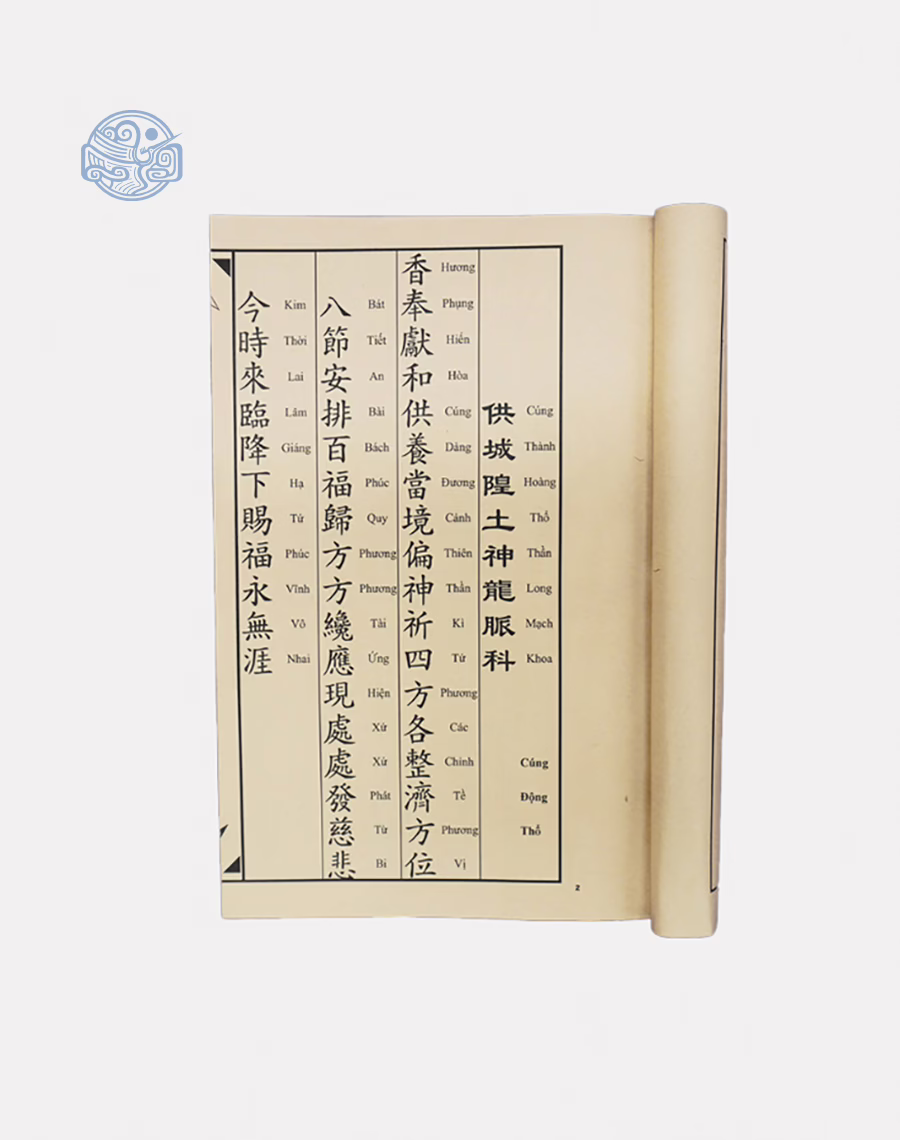 供城隍土神龍脈科
Cúng Thành Hoàng Thổ Thần Long Mạch Khoa
Cúng Động Thổ
香奉獻和供養當境偏神祈四方各整濟方位
Hương Phụng Hiến Hòa Cúng Dàng Đương Cảnh Thiên Thần Kì Tứ Phương Các Chỉnh Tề Phương Vị
八節安排百福歸方方纔應現處處發慈悲
Bát Tiết An Bài Bách Phúc Quy Phương Phương Tài Ứng Hiện Xử Xử Phát Từ Bi
今時來臨降下賜福永無涯
Kim Thời Lai Lâm Giáng Hạ Tứ Phúc Vĩnh Vô Nhai
2